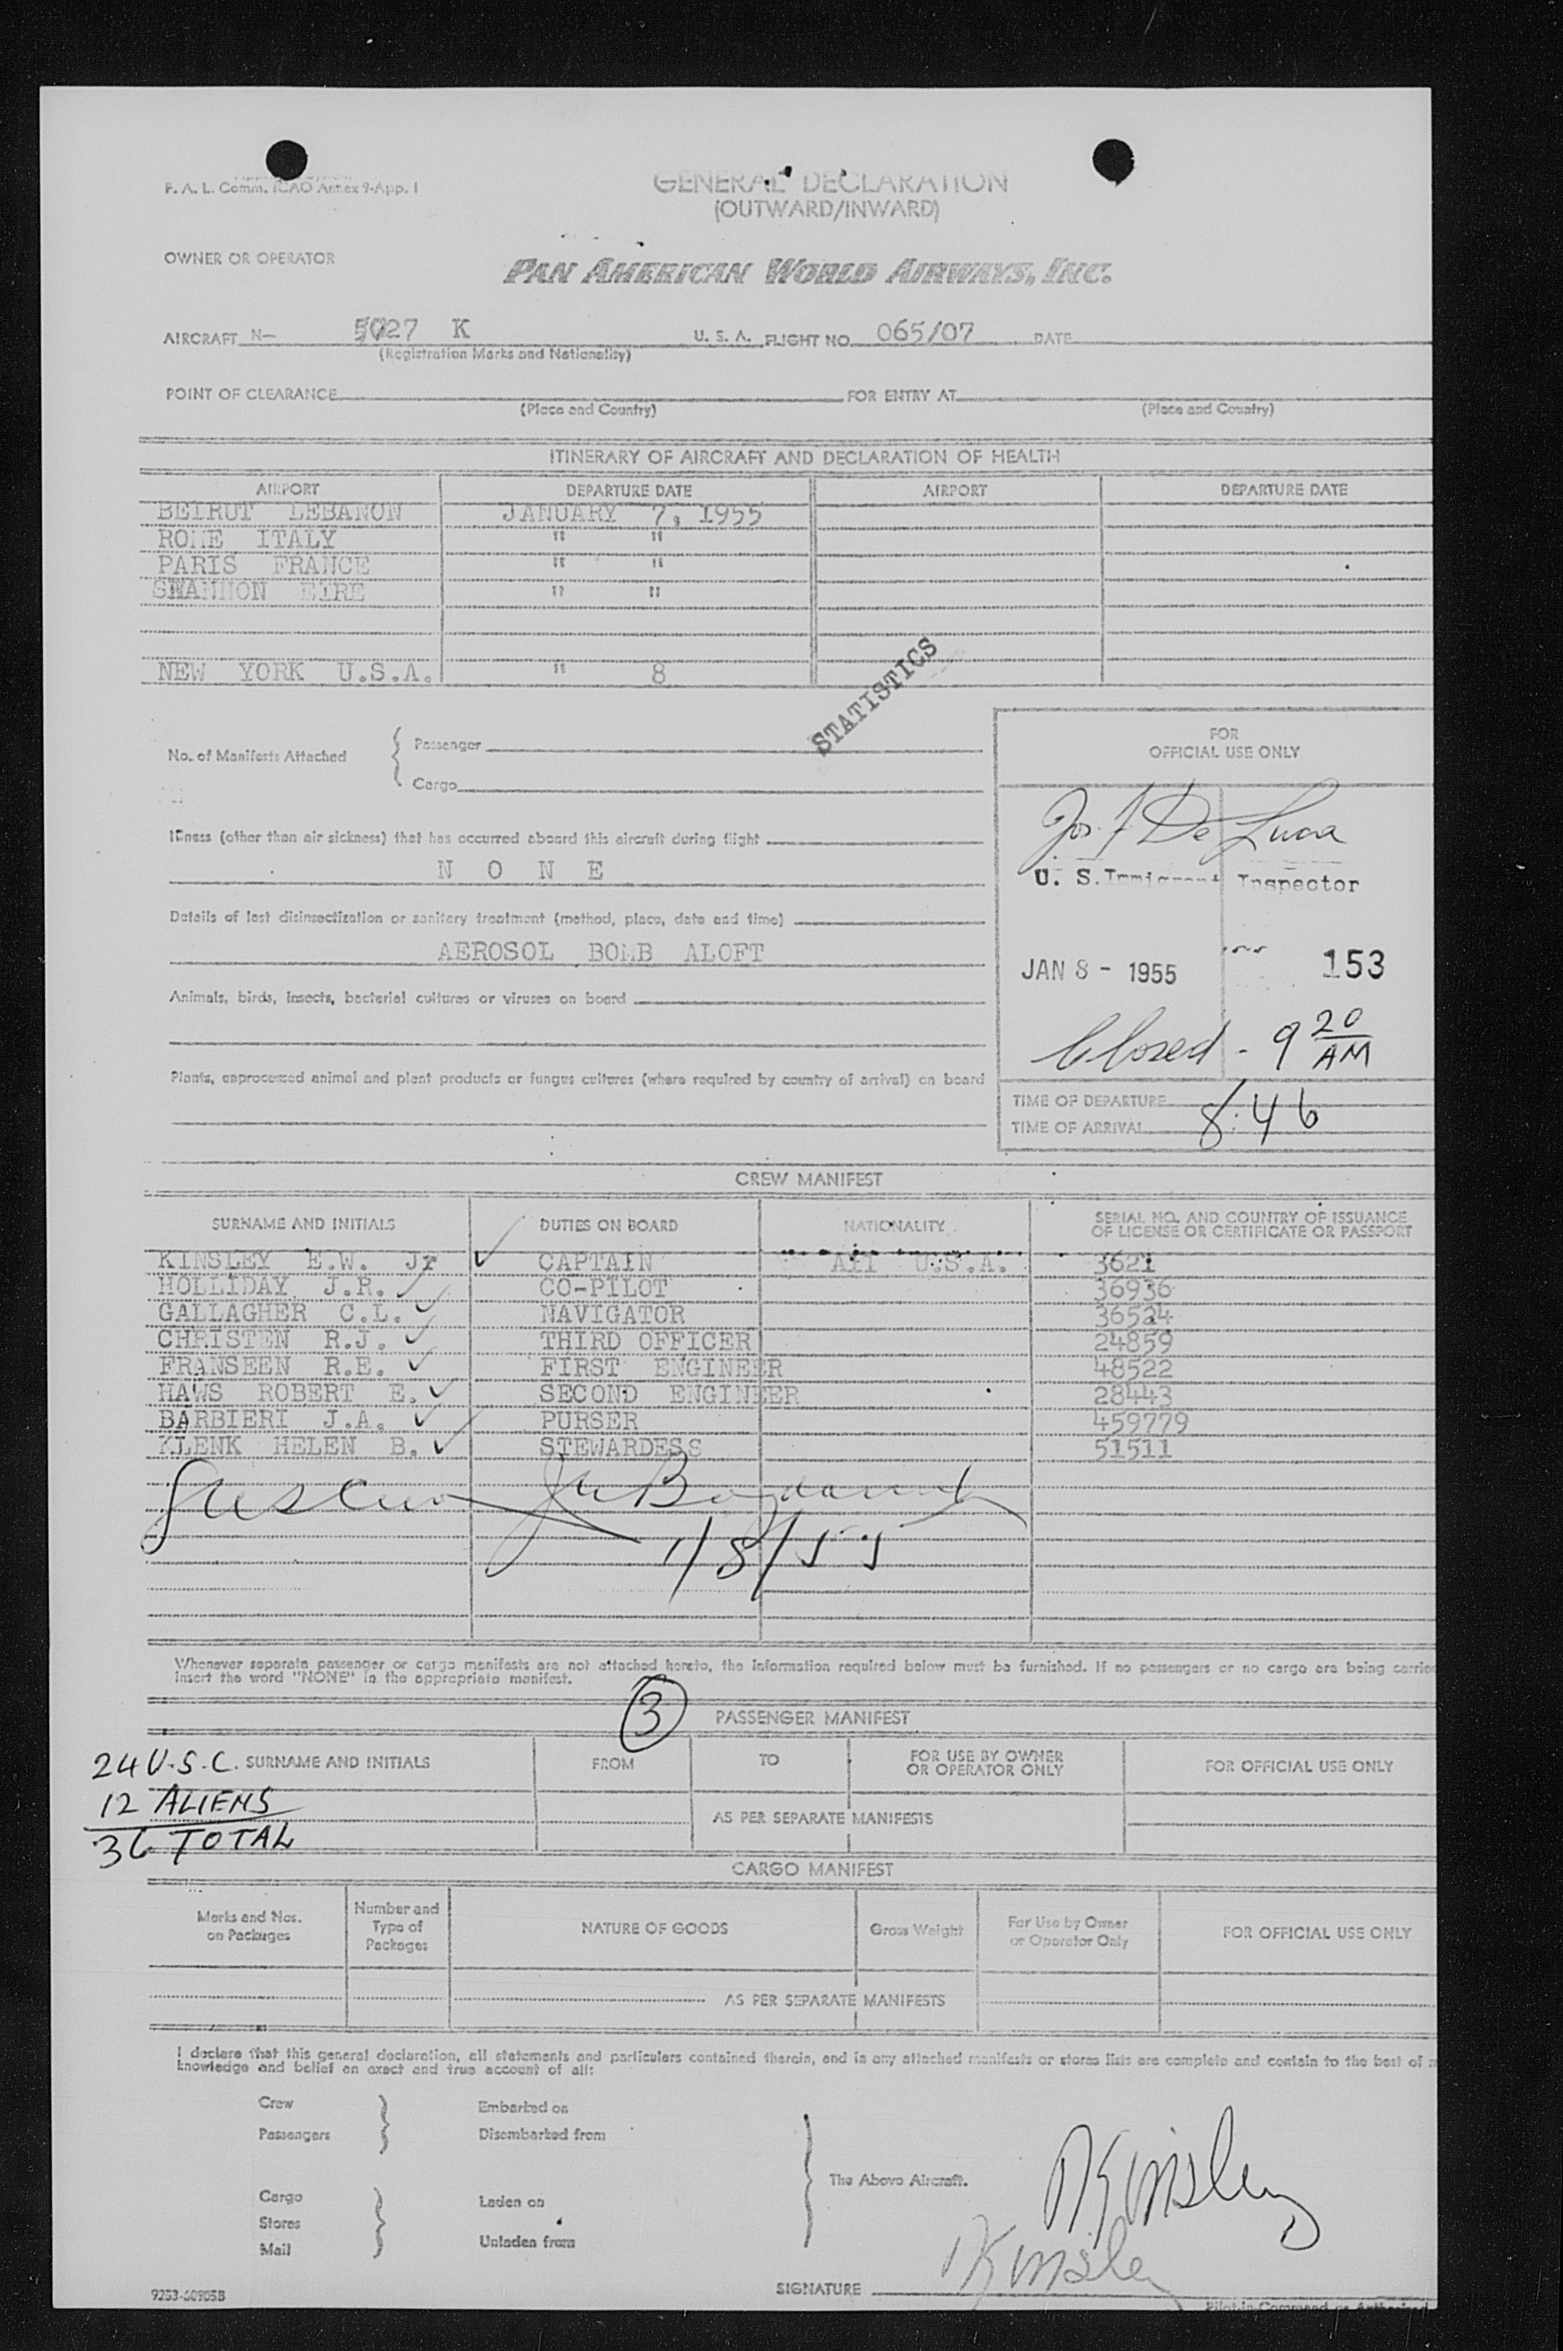 F. A. L. Comm. ICAO Annex 9-App. 1
GENERAL DECLARATION
(OUTWARD/INWARD)
OWNER OR OPERATOR
PAN AMERICAN WORLD AIRWAYS, INC.
AIRCRAFT N- 5027 K U. S. A. FLIGHT NO. 065/07 DATE
(Registration Marks and Nationality)
POINT OF CLEARANCE FOR ENTRY AT
(Place and Country) (Place and Country)
ITINERARY OF AIRCRAFT AND DECLARATION OF HEALTH
AIRPORT DEPARTURE DATE AIRPORT DEPARTURE DATE
BEIRUT LEBANON JANUARY 7, 1955
ROME ITALY " "
PARIS FRANCE " "
SHANNON EIRE " "
NEW YORK U.S.A. " 8
STATISTICS
No. of Manifests Attached { Passenger
Cargo
FOR
OFFICIAL USE ONLY
Illness (other than air sickness) that has occurred aboard this aircraft during flight
N O N E
Jos. F De Luca
U. S. Immigrant Inspector
Details of last disinsectization or sanitary treatment (method, place, date and time)
AEROSOL BOMB ALOFT
JAN 8 - 1955 153
Animals, birds, insects, bacterial cultures or viruses on board
Closed - 9 20 AM
Plants, unprocessed animal and plant products or fungus cultures (where required by country of arrival) on board
TIME OF DEPARTURE
TIME OF ARRIVAL 8:46
CREW MANIFEST
SURNAME AND INITIALS DUTIES ON BOARD NATIONALITY SERIAL NO. AND COUNTRY OF ISSUANCE
OF LICENSE OR CERTIFICATE OR PASSPORT
KINSLEY E.W. Jr ✓ CAPTAIN All U.S.A. 3621
HOLLIDAY J.R. ✓ CO-PILOT 36936
GALLAGHER C.L. ✓ NAVIGATOR 36524
CHRISTEN R.J. ✓ THIRD OFFICER 24859
FRANSEEN R.E. ✓ FIRST ENGINEER 48522
HAWS ROBERT E. ✓ SECOND ENGINEER 28443
BARBIERI J.A. ✓ PURSER 459779
KLENK HELEN B. ✓ STEWARDESS 51511
1/8/55
Whenever separate passenger or cargo manifests are not attached hereto, the information required below must be furnished. If no passengers or no cargo are being carrie
insert the word "NONE" in the appropriate manifest.
3
PASSENGER MANIFEST
24 U.S.C. SURNAME AND INITIALS FROM TO FOR USE BY OWNER
OR OPERATOR ONLY FOR OFFICIAL USE ONLY
12 ALIENS
AS PER SEPARATE MANIFESTS
36 TOTAL
CARGO MANIFEST
Marks and Nos.
on Packages Number and
Type of
Packages NATURE OF GOODS Gross Weight For Use by Owner
or Operator Only FOR OFFICIAL USE ONLY
AS PER SEPARATE MANIFESTS
I declare that this general declaration, all statements and particulars contained therein, and in any attached manifests or stores lists are complete and contain to the best of
knowledge and belief an exact and true account of all:
Crew Embarked on
Passengers Disembarked from
The Above Aircraft.
Cargo Laden on
Stores
Mail Unladen from
Kinsley
Kinsley
SIGNATURE
Pilot-in-Command or Authorized
9253-60905B